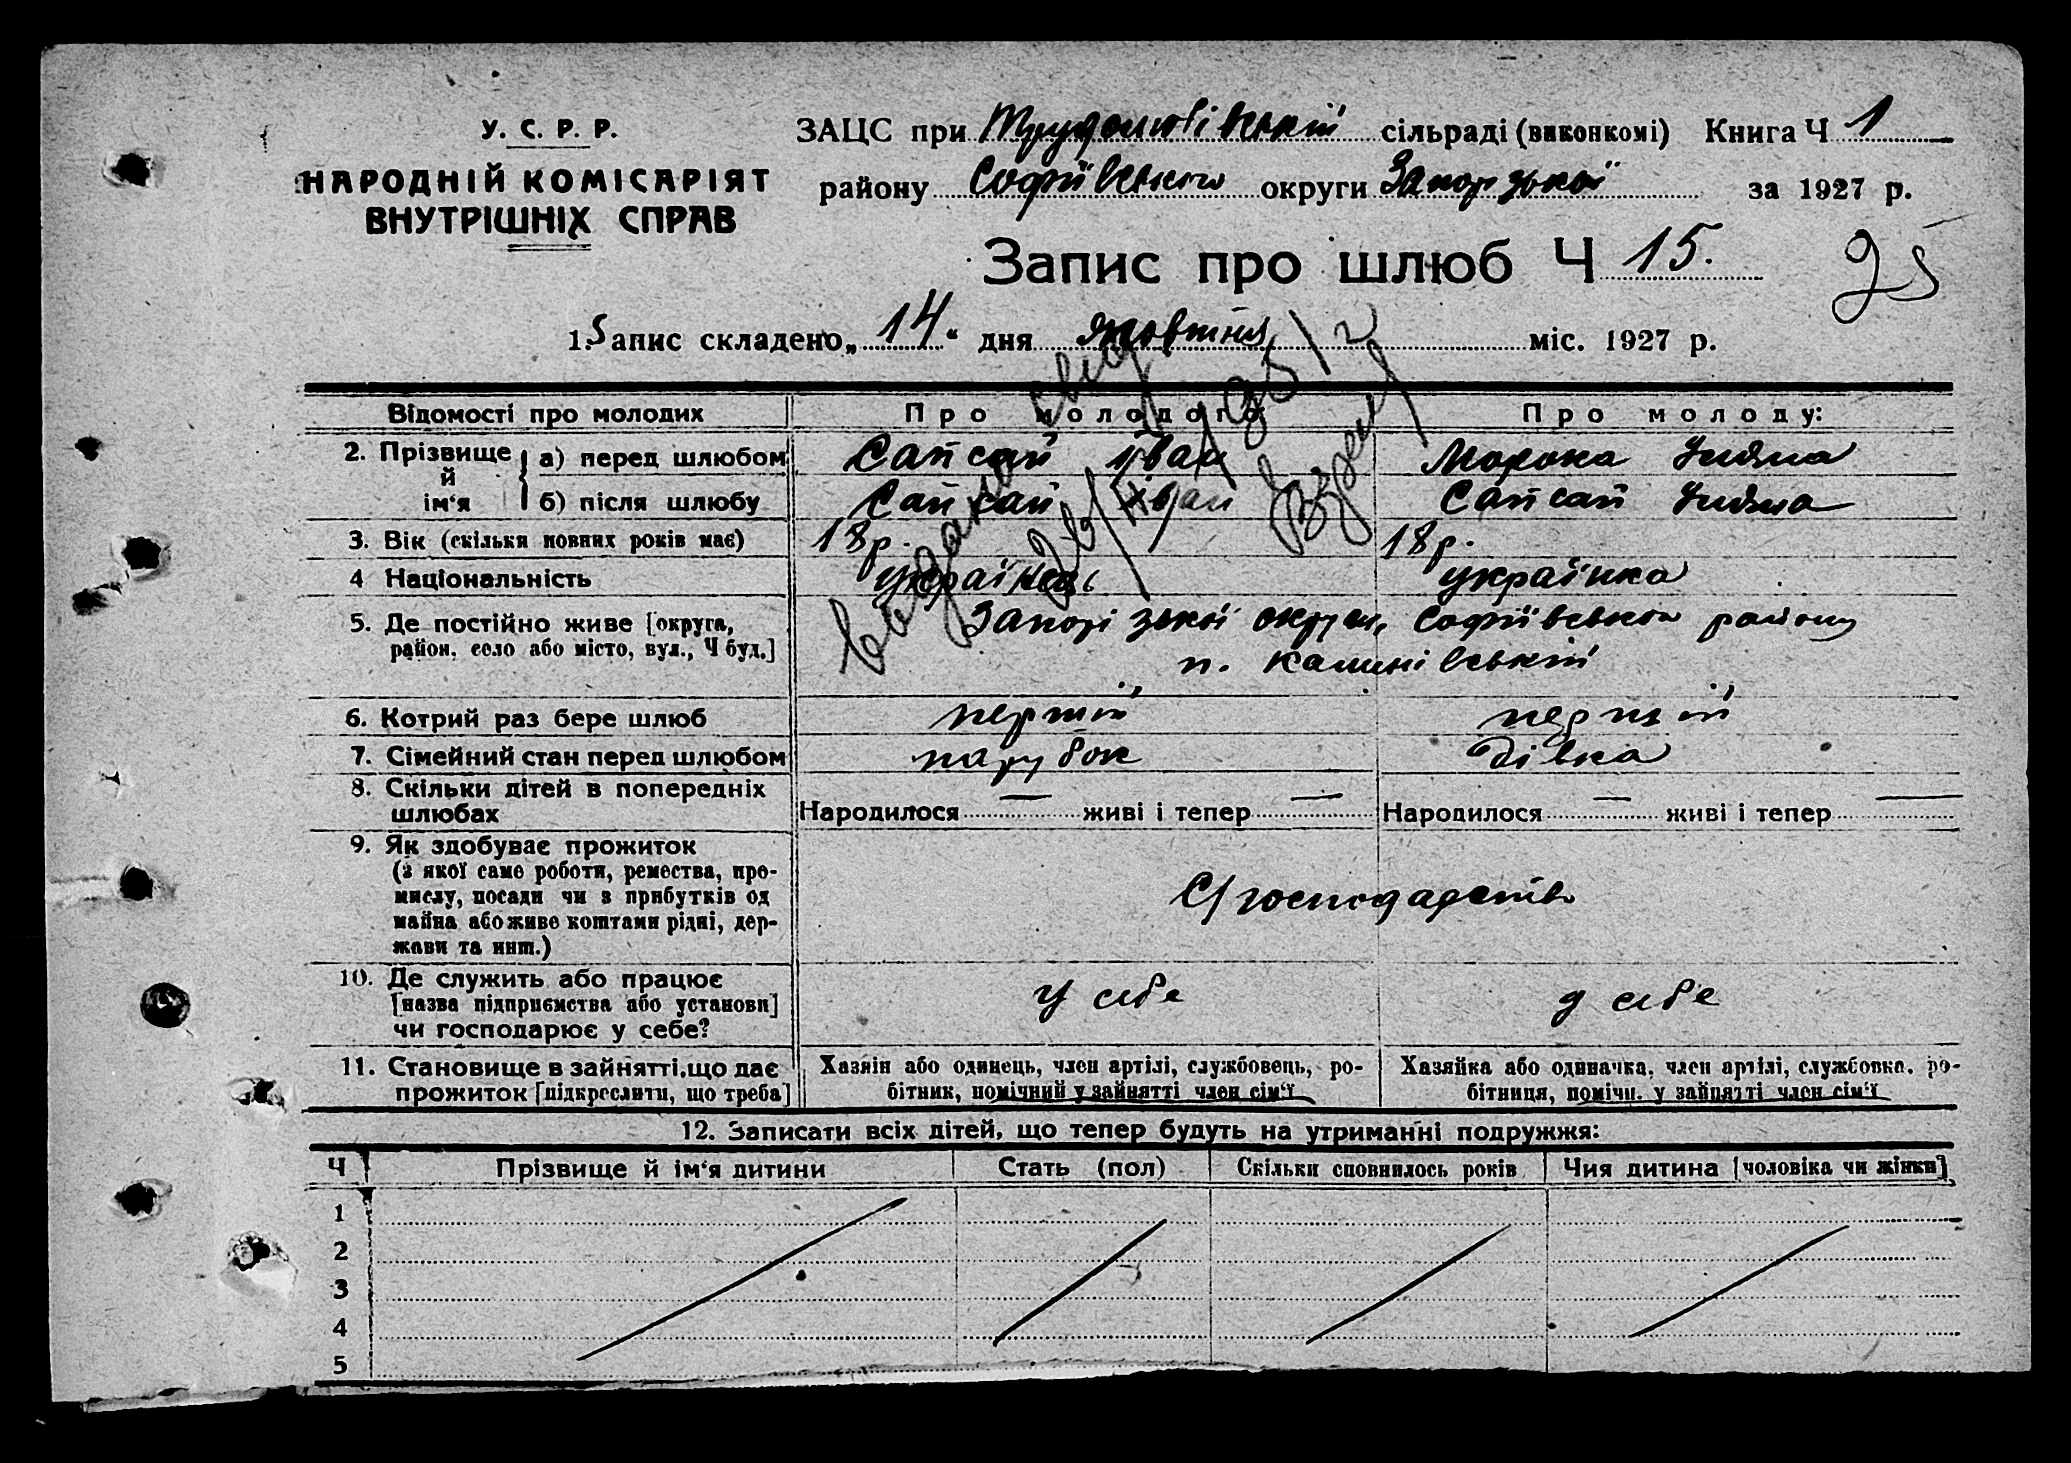 У. С. Р. Р.
НАРОДНІЙ КОМІСАРІЯТ
ВНУТРІШНІХ СПРАВ
ЗАЦС при Трудолюбівській сільраді (виконкомі) Книга Ч 1
району Софіївського округи Запорізької за 1927 р.
Запис про шлюб Ч 15.
25
1. Запис складено „14“ дня жовтня міс. 1927 р.
Відомості про молодих
Про молодого:
Про молоду:
2. Прізвище й ім'я
а) перед шлюбом Сапсай Іван Морока
б) після шлюбу Сапсай Іван Сапсай
3. Вік (скільки повних років має) 18 р. 18 р.
4 Національність українець українка
5. Де постійно живе [округа, Запорізької округи, Софіївського району
район, село або місто, вул., Ч буд.] п. Калинівський
6. Котрий раз бере шлюб перший перший
7. Сімейний стан перед шлюбом парубок дівка
8. Скільки дітей в попередніх
шлюбах Народилося — живі і тепер — Народилося — живі і тепер —
9. Як здобуває прожиток
(з якої саме роботи, ремества, про-
мислу, посади чи з прибутків од С/господарство
майна або живе коштами рідні, дер-
жави та инш.)
10. Де служить або працює
[назва підприємства або установи] у себе у себе
чи господарює у себе?
11. Становище в зайнятті, що дає
прожиток [підкреслити, що треба]
Хазяїн або одинець, член артілі, службовець, ро-
бітник, помічний у зайнятті член сім'ї
Хазяйка або одиначка, член артілі, службовка, ро-
бітниця, помічн. у зайнятті член сім'ї
12. Записати всіх дітей, що тепер будуть на утриманні подружжя:
Ч Прізвище й ім'я дитини Стать (пол) Скільки сповнилось років Чия дитина [чоловіка чи жінки]
1
2
3
4
5